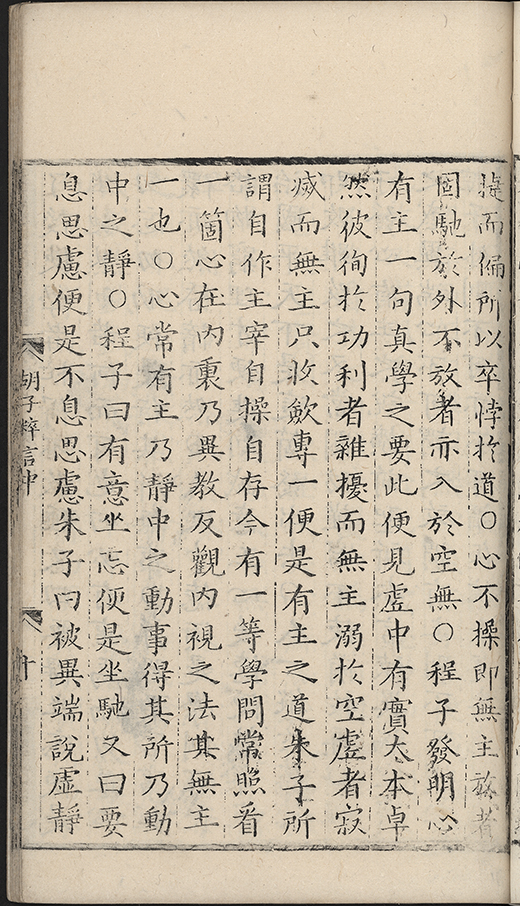 捷而偏所以卒悖於道○心不操即無主放者
固馳於外不放者亦入於空無○程子發明心
有主一句真學之要此便見虛中有實大本卓
然彼徇於功利者雜擾而無主溺於空虛者寂
滅而無主只收歛專一便是有主之道朱子所
謂自作主宰自操自存今有一等學問常照看
一箇心在內裏乃異教反觀內視之法其無主
一也○心常有主乃靜中之動事得其所乃動
中之靜○程子曰有意坐忘便是坐馳又曰要
息思慮便是不息思慮朱子曰被異端說虛靜
胡子粹言中
十